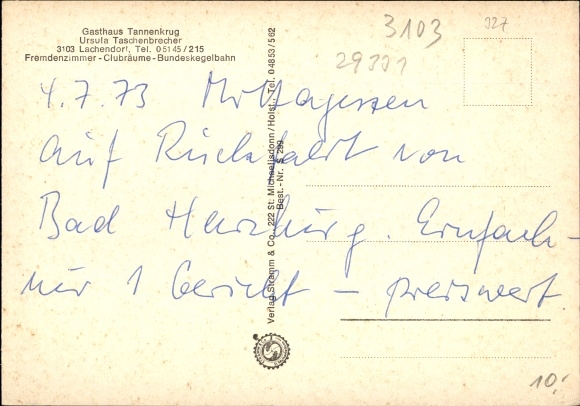 Gasthaus Tannenkrug
Ursula Taschenbrecher
3103 Lachendorf, Tel. 05145/215
Fremdenzimmer - Clubräume - Bundeskegelbahn
3103
327
29331
4.7.73 Mittagessen
auf Rückfahrt von
Bad Harzburg. Einfach -
nur 1 Gericht - preiswert
Verlag Stramm & Co., 222 St. Michaelisdonn/Holst., Tel. 04853/562
Best.-Nr. S 299
10,-